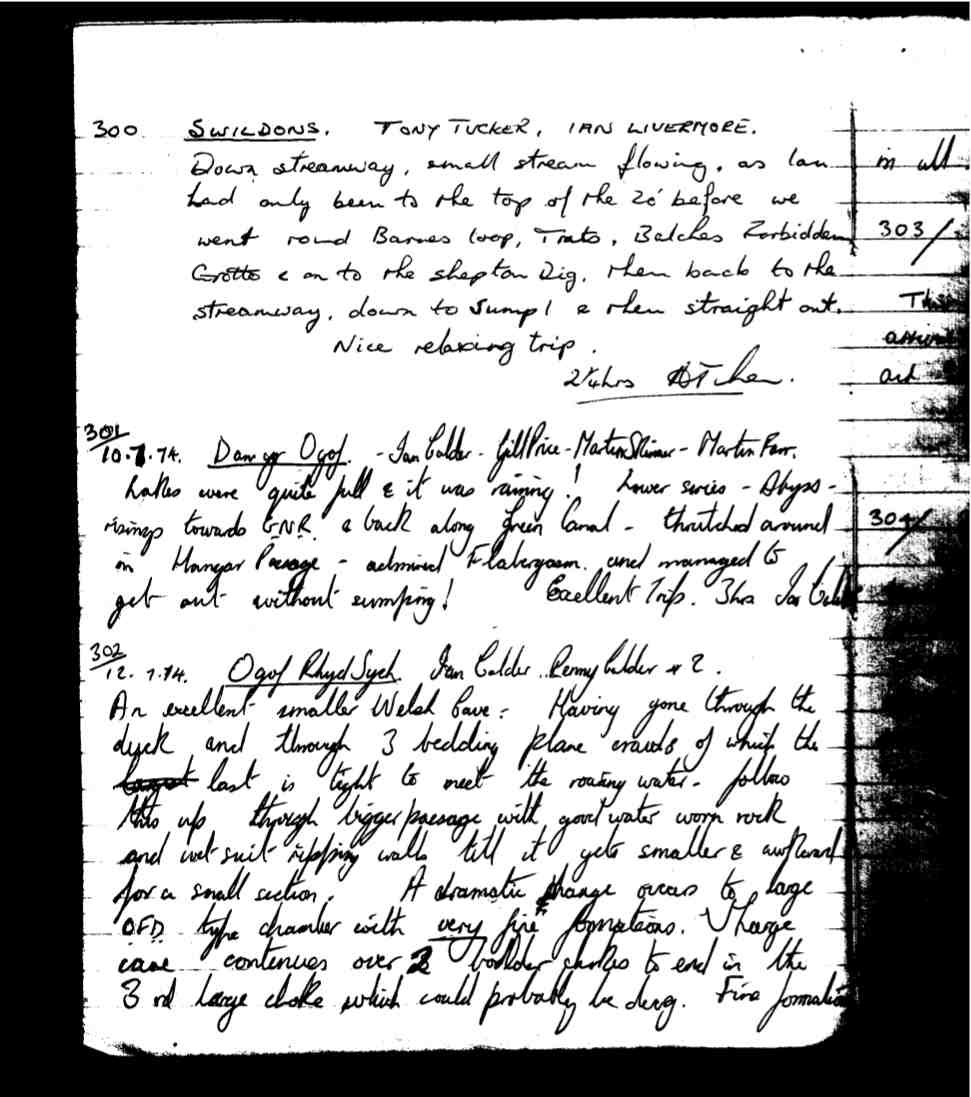 300. SWILDONS. TONY TUCKER, IAN LIVERMORE.
Down streamway, small stream flowing, as Ian
had only been to the top of the 20' before we
went round Barnes loop, Trats, Belches Forbidden
Grotto & on to the Shepton Dig, then back to the
streamway, down to Sump 1 & then straight out.
Nice relaxing trip.
2¼hrs
301
10.7.74. Dan yr Ogof. - Ian Calder - Gill Price - Martin - Martin Farr.
Lakes were quite full & it was raining! Lower series - Abyss -
risings towards G.N.R. & back along Green Canal - thrutched around
in Hangar Passage - admired Flabergasm. and managed to
get out without sumping! Excellent Trip. 3hrs
302
12.7.74. Ogof Rhyd Sych. Ian Calder. Penny Calder + 2.
An excellent smaller Welsh Cave - Having gone through the
duck and through 3 bedding plane crawls of which the
last is tight to meet the roaring water - follow
this up through bigger passage with good water worn rock
and wet suit ripping walls till it gets smaller & awkward
for a small section. A dramatic change occurs to large
OFD type chamber with very fine formations. Large
cave continues over 2 boulder chokes to end in the
3rd large choke which could probably be dug. Fine formation
in all
303/
304/